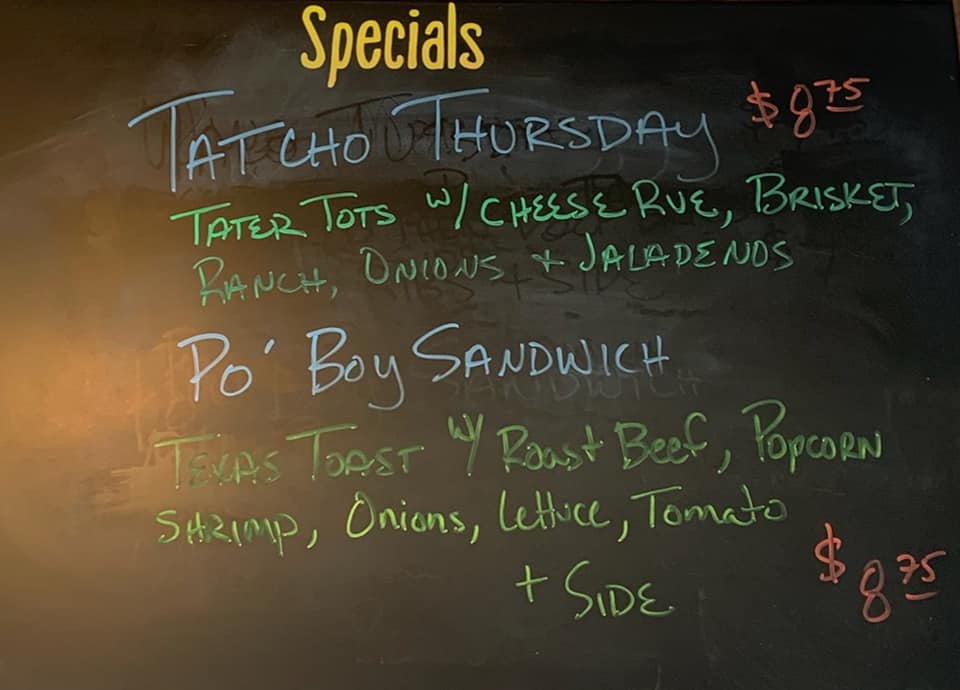 Specials
TATCHO THURSDAY $8 75
TATER TOTS W/ CHEESE RUE, BRISKET,
RANCH, ONIONS + JALAPENOS
PO' BOY SANDWICH
TEXAS TOAST W/ ROAST BEEF, POPCORN
SHRIMP, Onions, Lettuce, Tomato
+ SIDE $8 75